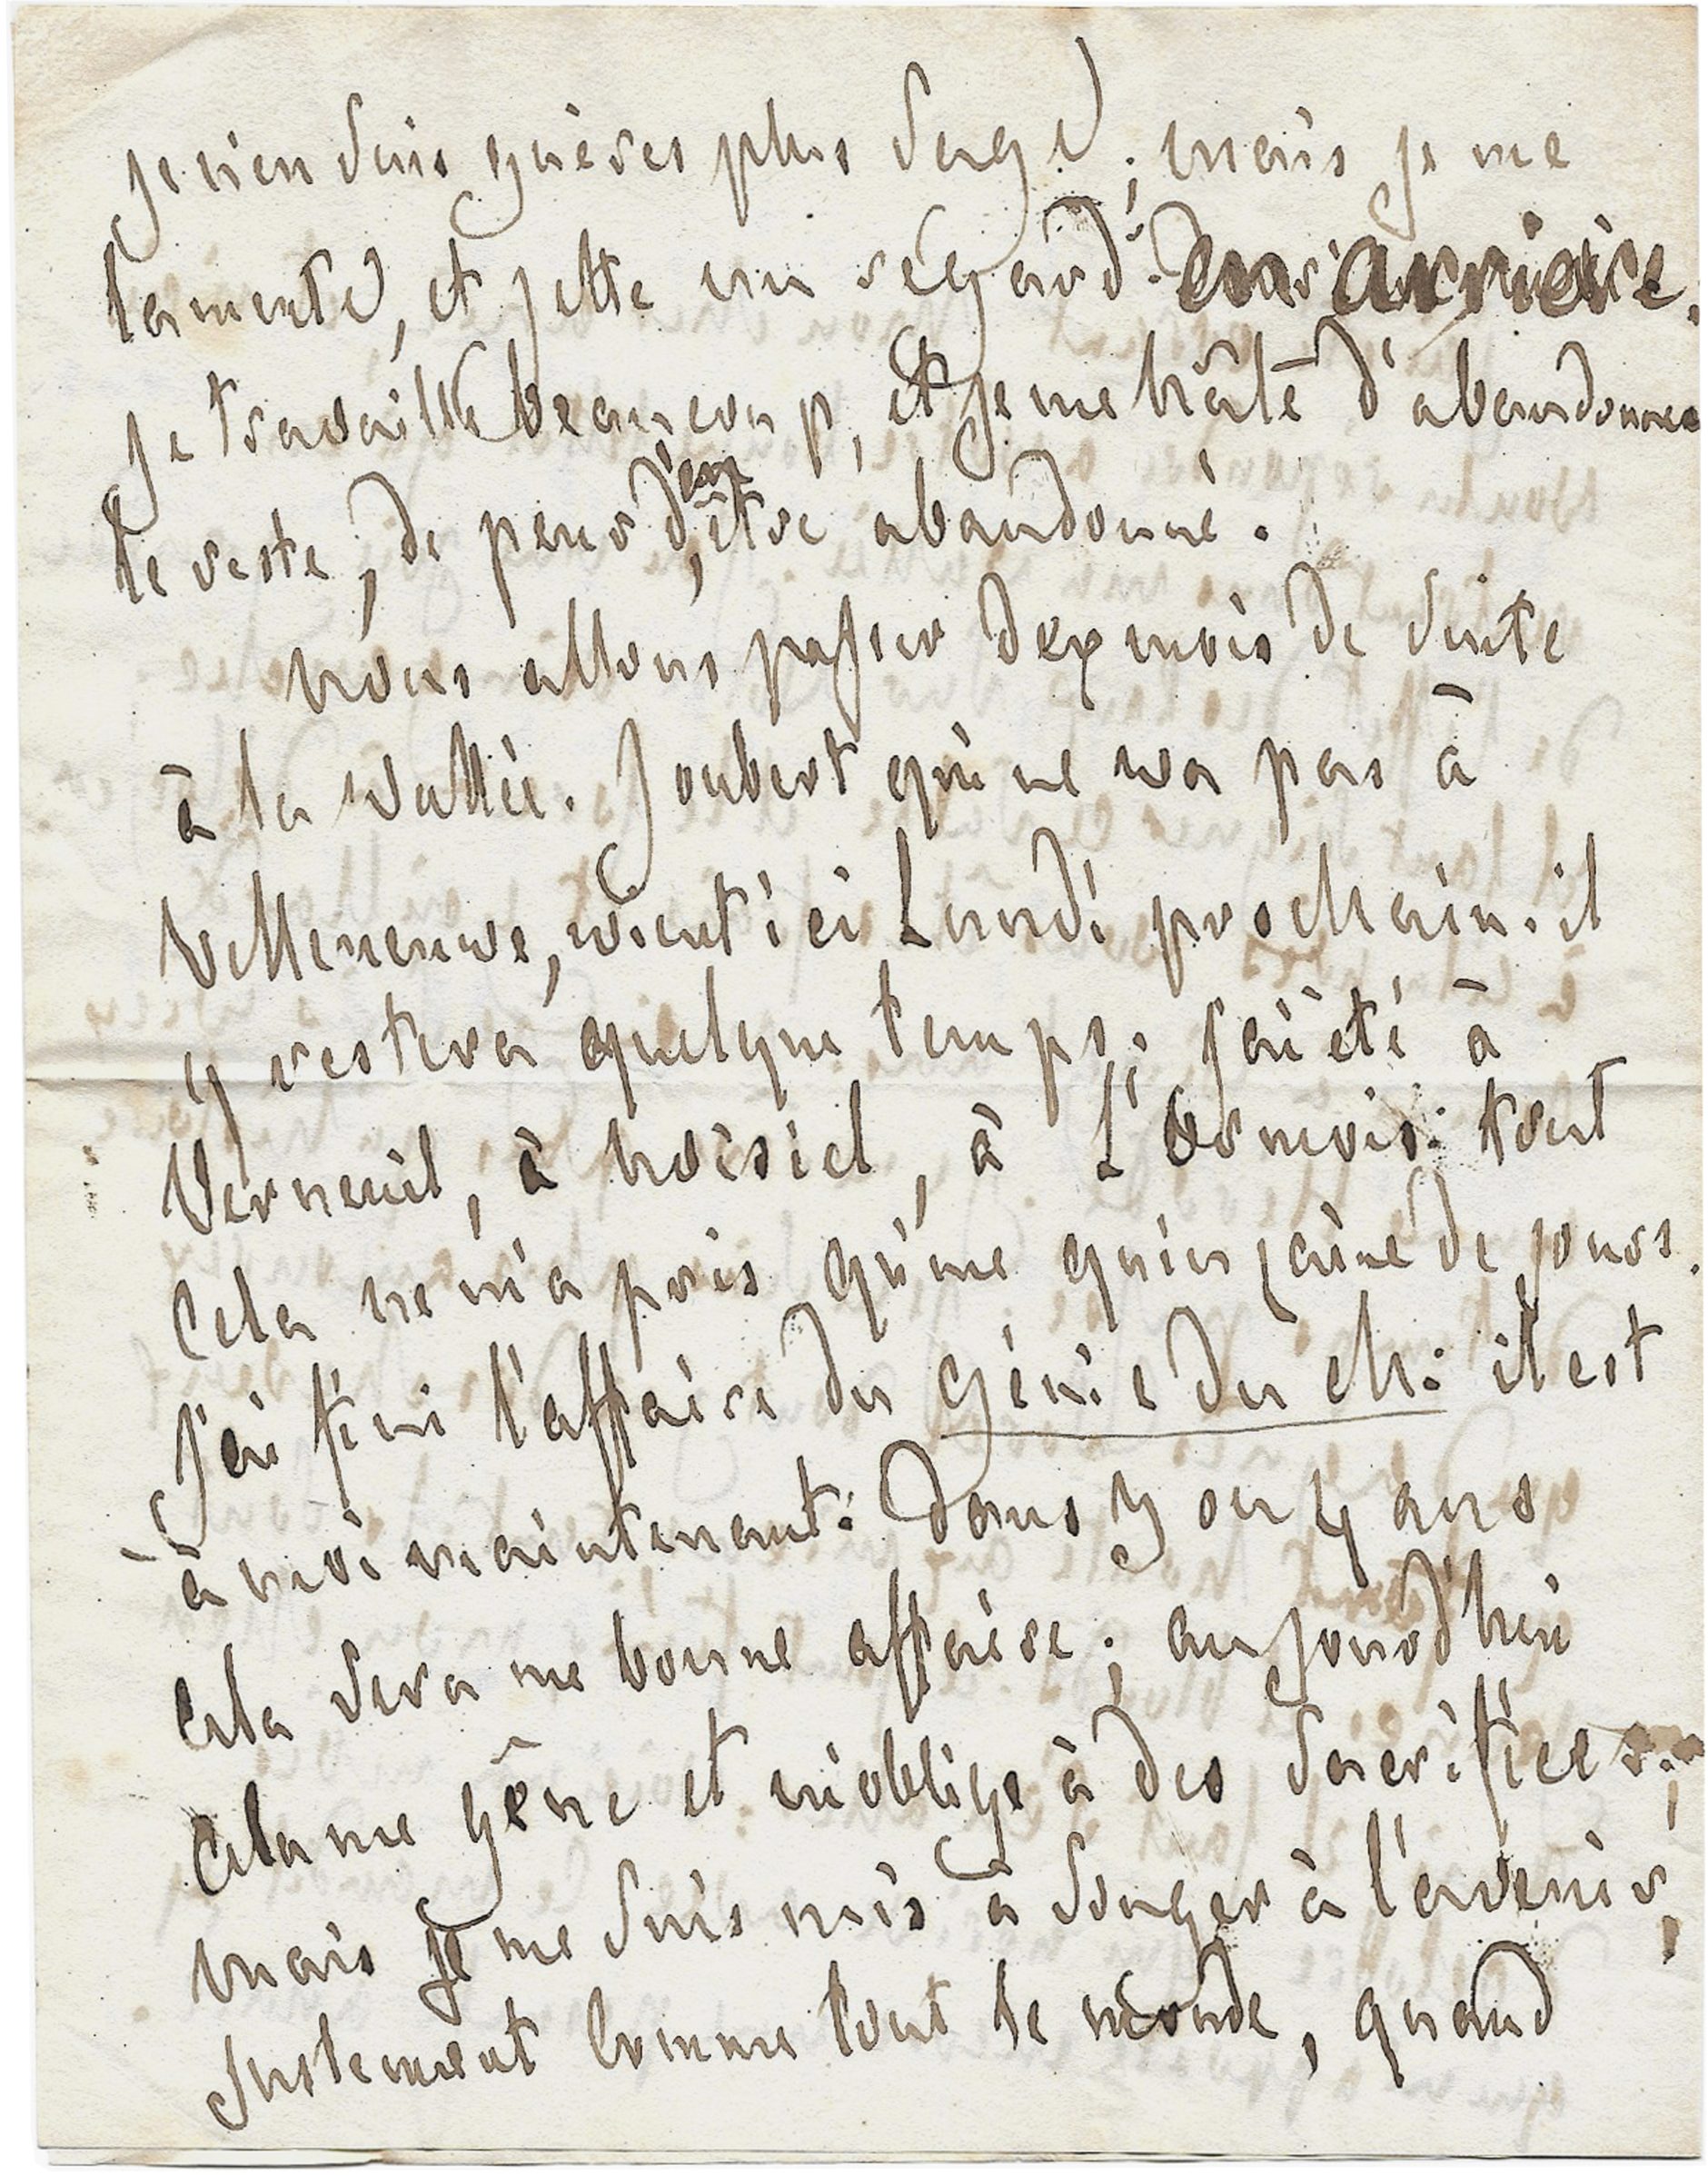 je n'en suis guères plus sage ; mais je me
lamente, et jette un regard en arrière.
Je travaille beaucoup, et je me hâte d'abandonner
le reste, de peur d'en être abandonné.
nous allons passer dix mois de suite
à la vallée. Joubert qui ne va pas à
Villeneuve, vient ici Lundi prochain. il
y restera quelque temps. j'ai été à
Verneuil, à noisiel, à L'Ormois. tout
cela ne m'a pris qu'une quinzaine de jours.
J'ai fini l'affaire du génie du ch: il est
à moi maintenant: dans 3 ou 4 ans
cela sera une bonne affaire ; aujourd'hui
cela me gêne et m'oblige à des sacrifices ;
mais je me suis mis à songer à l'avenir,
justement comme tout le monde, quand